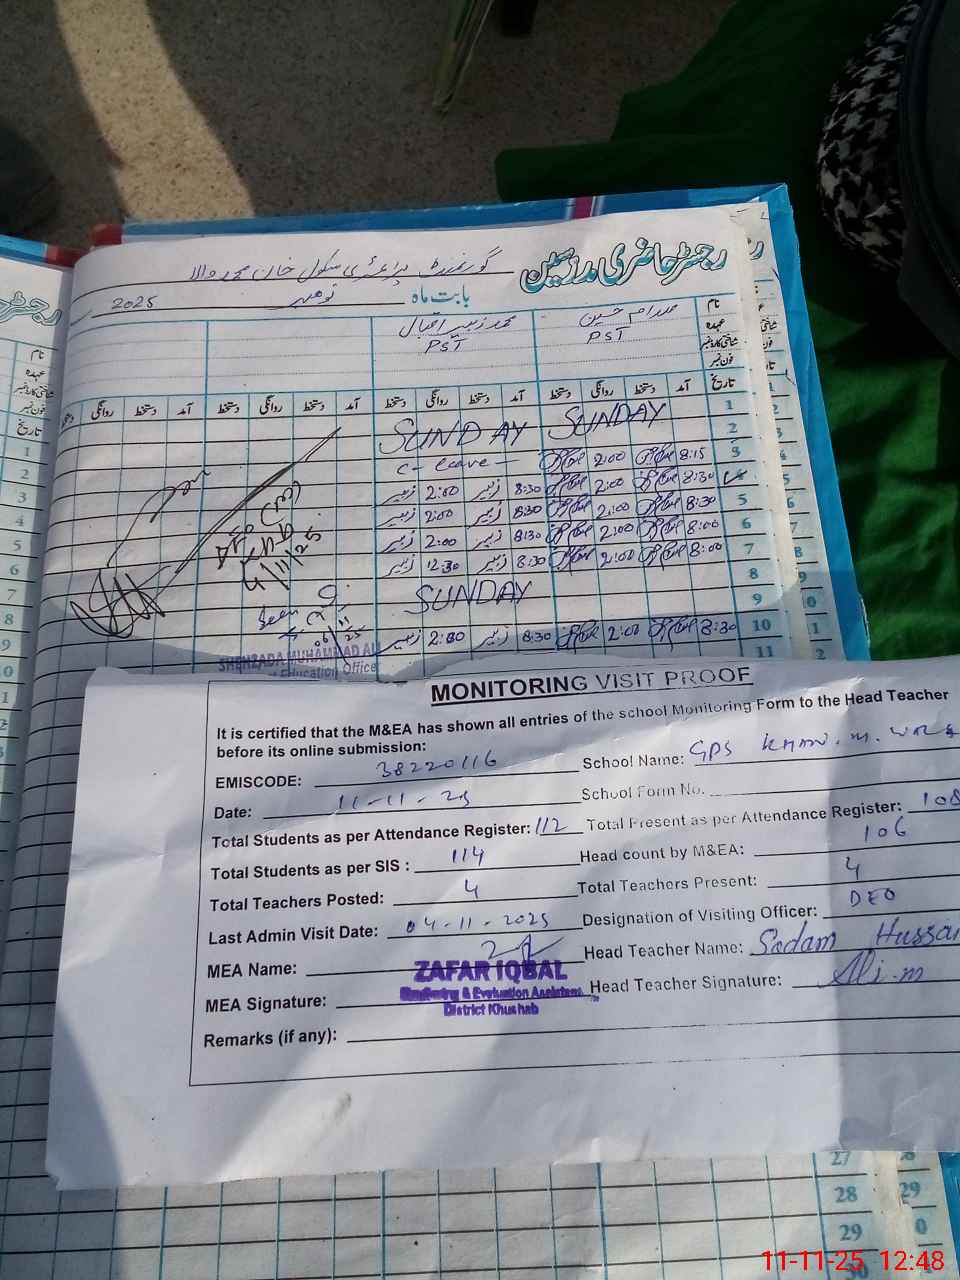 رجسٹر حاضری مدرسین
گورنمنٹ پرائمری سکول خان محمد والا
بابت ماہ نومبر 2025
نام صدام حسین محمد زبیر اقبال
عہدہ PST PST
شناختی کارڈ نمبر
فون نمبر
تاریخ آمد دستخط روانگی دستخط آمد دستخط روانگی دستخط آمد دستخط روانگی دستخط آمد دستخط روانگی دستخط
1
2 SUNDAY SUNDAY
3 8:15 2:00 C- leave -
8:30 2:00 8:30 زبیر 2:00 زبیر
5 8:30 2:00 8:30 زبیر 2:00 زبیر
6 8:00 2:00 8:30 زبیر 2:00 زبیر
7 8:00 2:00 8:30 زبیر 12:30 زبیر
8
9 SUNDAY
10 8:30 2:00 8:30 زبیر 2:00 زبیر
11
4/11/25
Seen
06/11/25
SHEHZADA MUHAMMAD ALI
Education Officer
MONITORING VISIT PROOF
It is certified that the M&EA has shown all entries of the school Monitoring Form to the Head Teacher
before its online submission:
EMISCODE: 38220116 School Name: GPS KHAN. M. WALA
Date: 11-11-25 School Form No.
Total Students as per Attendance Register: 112 Total Present as per Attendance Register: 108
Total Students as per SIS : 114 Head count by M&EA: 106
Total Teachers Posted: 4 Total Teachers Present: 4
Last Admin Visit Date: 04-11-2025 Designation of Visiting Officer: DEO
MEA Name: Head Teacher Name: Sadam Hussain
ZAFAR IQBAL
MEA Signature: Head Teacher Signature:
Monitoring & Evaluation Assistant
District Khushab
Remarks (if any):
27
28
29
30
11-11-25 12:48